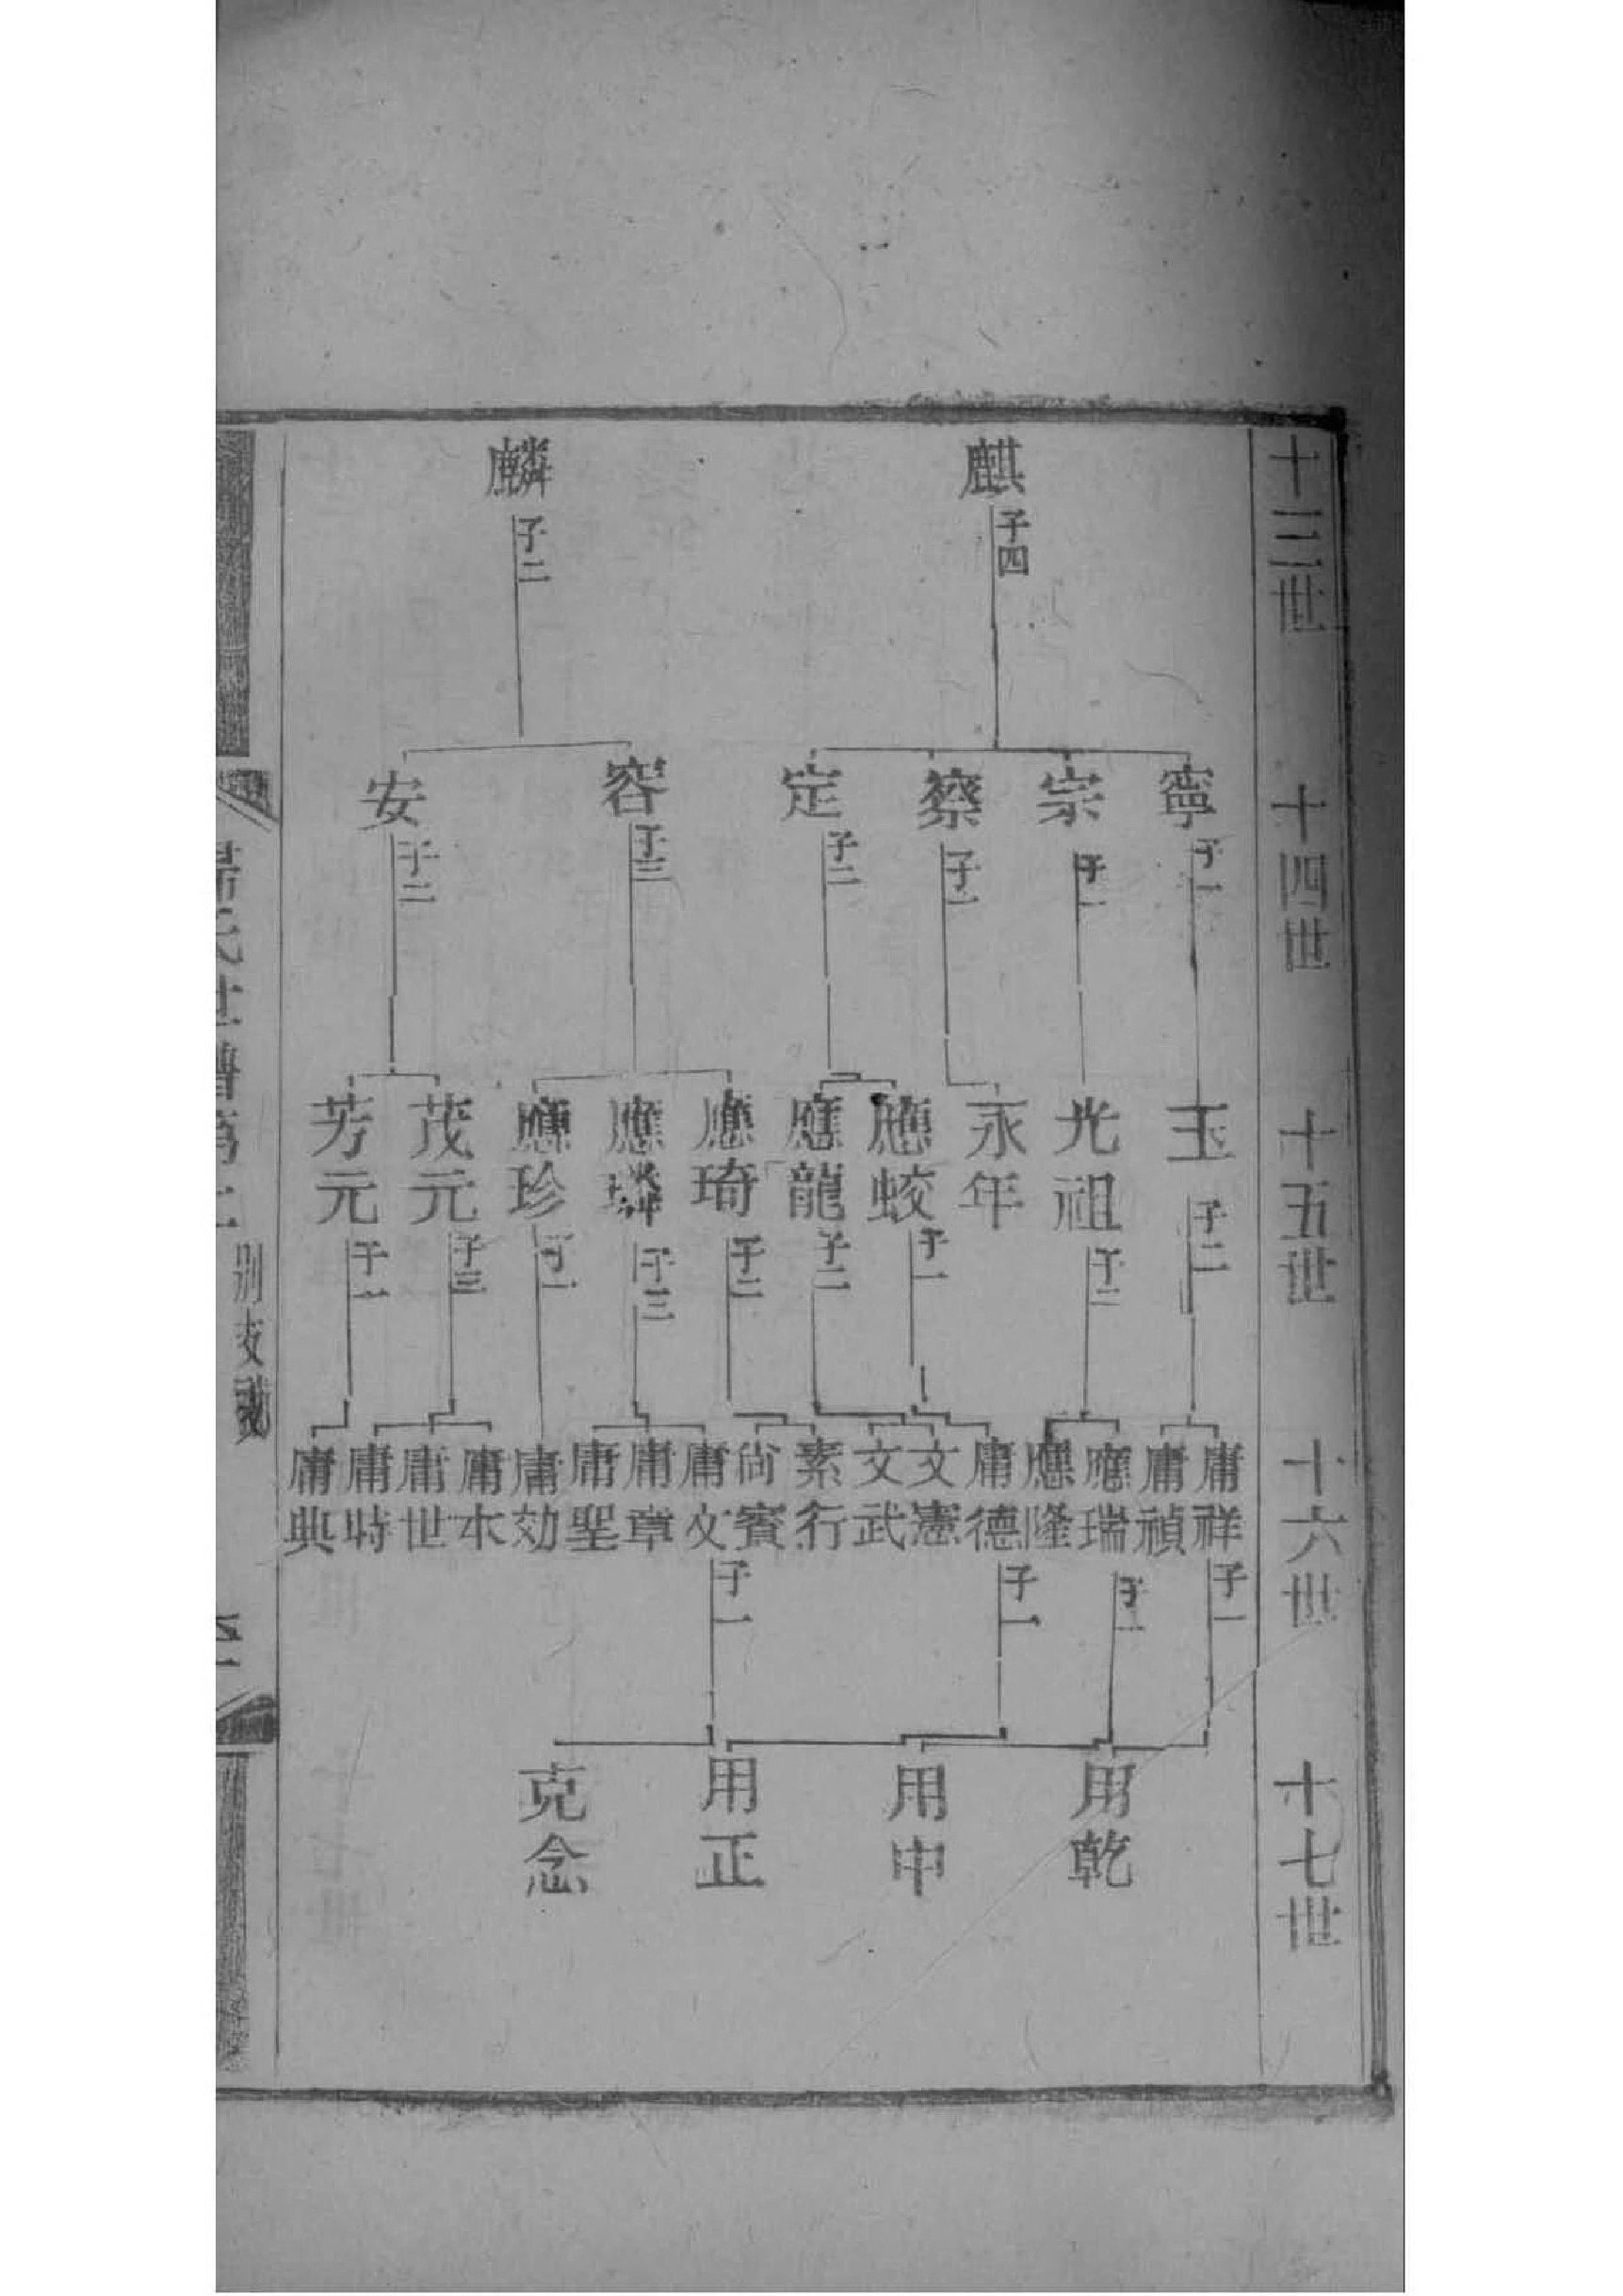 十三世
麒 子四
麟 子二
十四世
寧 子一
宗 子一
察 子一
定 子二
容 子三
安 子二
十五世
玉 子二
光祖 子二
永年
應蛟 子一
應龍 子二
應琦 子二
應璘 子三
應珍 子一
茂元 子三
芳元 子一
十六世
庸祥 子一
庸禎
應瑞 子一
應隆
庸德 子一
文憲
文武
素行
尚賓
庸文 子一
庸章
庸聖
庸効
庸本
庸世
庸時
庸典
十七世
用乾
用申
用正
克念
氏世譜第二
別支